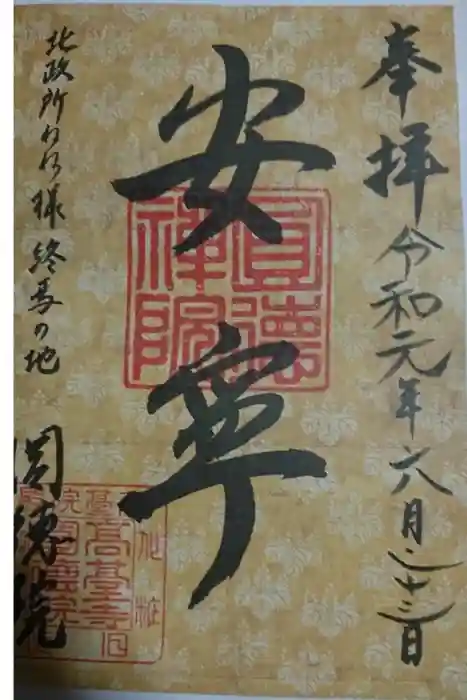 奉拝 令和元年六月二十三日
安寧
圓徳禅院
北政所ねね様 終焉の地
圓徳院